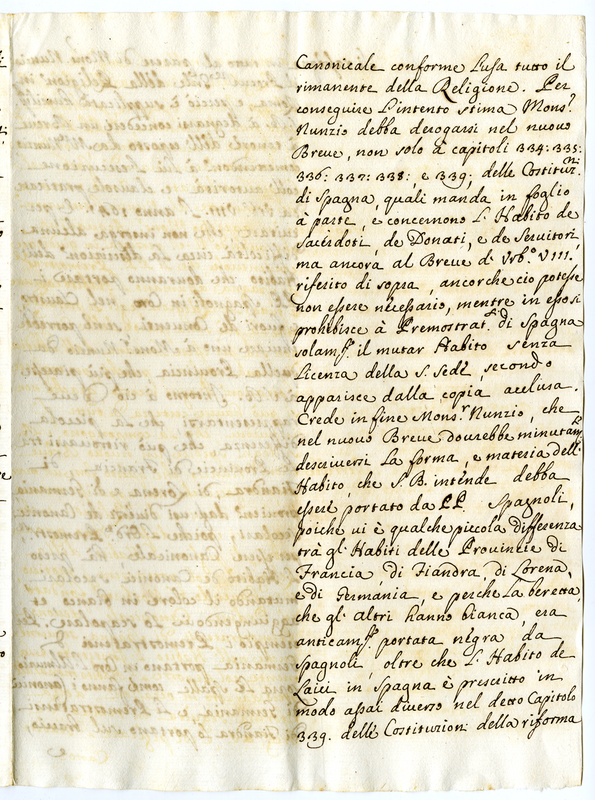 Canonicale conforme l'usa tutto il
rimanente della Religione. Per
conseguire l'intento stima Mons.r
Nunzio debba derogarsi nel nuovo
Breve, non solo à capitoli 334: 335:
336: 337: 338: e 339: delle Costituz.ni
di Spagna, quali manda in foglio
à parte, e concernono l'Habito de
Sacerdoti, de Donati, e de Servitori,
ma ancora al Breve d'Urb.o VIII.
riferito di sopra, ancorche ciò potesse
non essere necessario, mentre in esso si
prohibisce à Premostrat.si di Spagna
solam.te il mutar Habito senza
licenza della S. Sede, secondo
apparisce dalla copia acclusa.
Crede in fine Mons.r Nunzio, che
nel nuovo Breve dovrebbe minutam.te
descriversi la forma, e materia dell'
Habito, che S. B. intende debba
essere portato da PP. Spagnoli,
poiche vi è qualche piccola differenza
trà gl'Habiti delle Provincie di
Francia, di Fiandra, di Lorena,
e di Germania, e perche la beretta,
che gl'altri hanno bianca, era
anticam.te portata negra da
Spagnoli, oltre che l'Habito de
Laici in Spagna è prescritto in
modo assai diverso nel detto Capitolo
339. delle Costituzioni della riforma